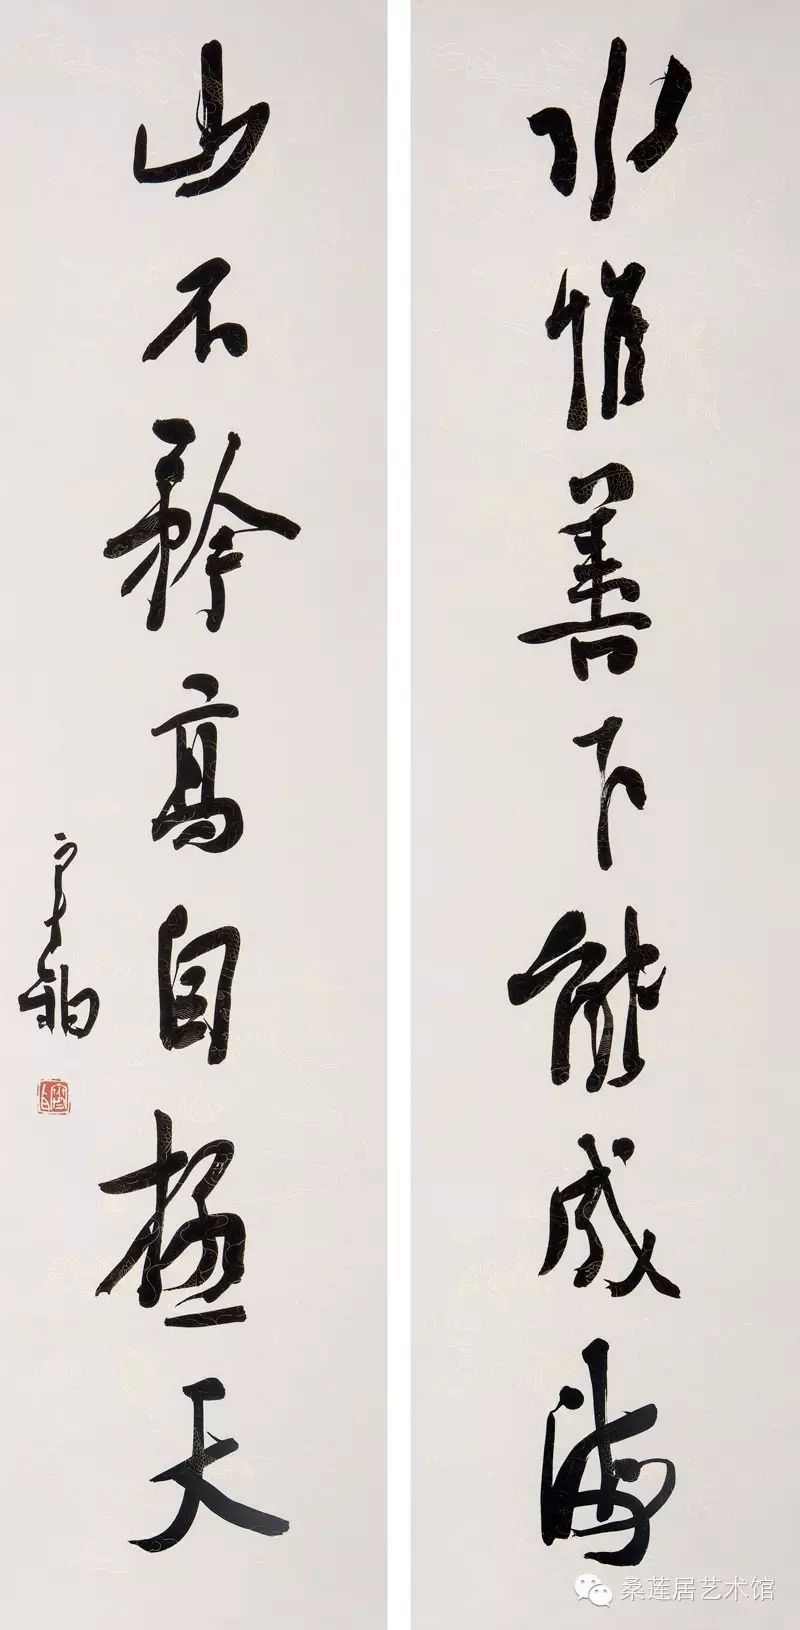 水惟善下能成海
山不矜高自極天
桑莲居艺术馆